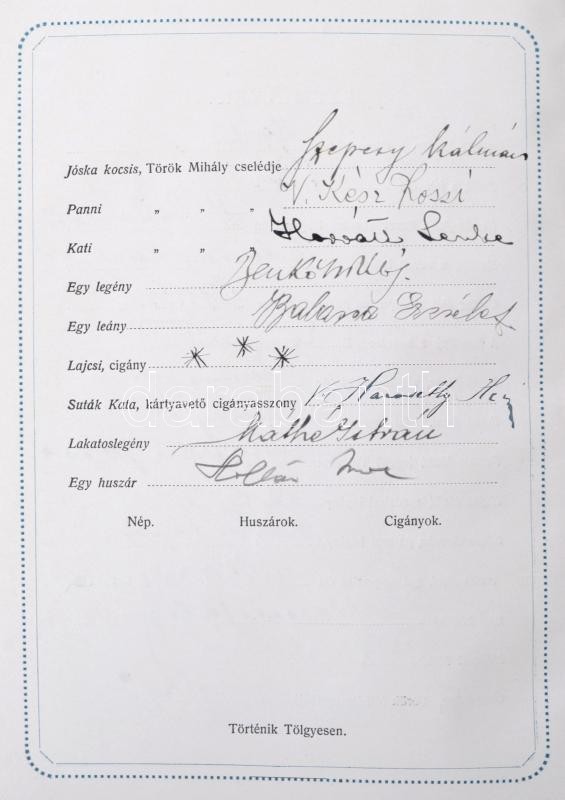 Jóska kocsis, Török Mihály cselédje Szepesy Kálmán
Panni „ „ „ V. Kész Rossi
Kati „ „ „ Horváth Lenke
Egy legény Benkő Miklós
Egy leány Balassa Erzsébet
Lajcsi, cigány * * *
Suták Kata, kártyavető cigányasszony V.
Lakatoslegény Máthé István
Egy huszár Imre
Nép. Huszárok. Cigányok.
Történik Tölgyesen.
darabanth